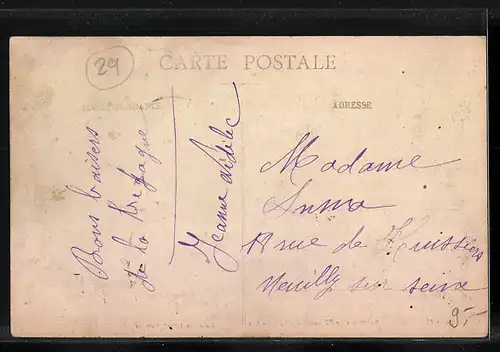 29
CARTE POSTALE
CORRESPONDANCE
ADRESSE
Bons baisers
de la Bretagne
Jeanne
Madame
rue de Huissiers
Neuilly sur seine
9.-